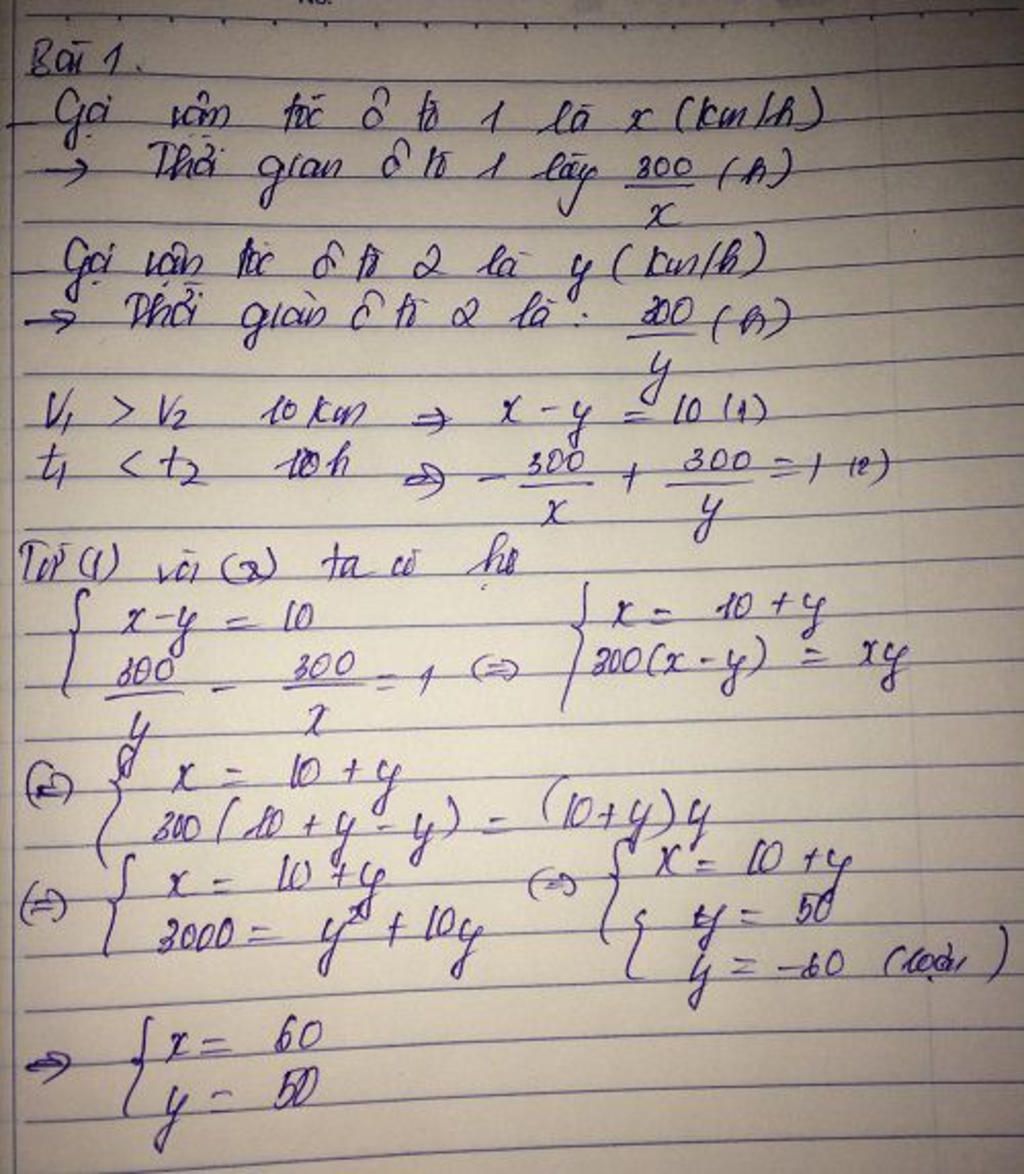 Bài 1.
Gọi vận tốc ô tô 1 là x (km/h)
→ Thời gian ô tô 1 là 300/x (h)
Gọi vận tốc ô tô 2 là y (km/h)
→ Thời gian ô tô 2 là : 300/y (h)
V₁ > V₂ 10 km ⇒ x - y = 10 (1)
t₁ < t₂ h ⇒ - 300/x + 300/y = 1 (2)
Từ (1) và (2) ta có hệ
{ x - y = 10 ; 300/y - 300/x = 1 (⇒) { x = 10 + y ; 300(x - y) = xy
(⇒) { x = 10 + y ; 300(10 + y - y) = (10+y)y
(⇒) { x = 10 + y ; 3000 = y² + 10y (⇒) { x = 10 + y ; { y = 50 ; y = -60 (loại)
⇒ { x = 60 ; y = 50